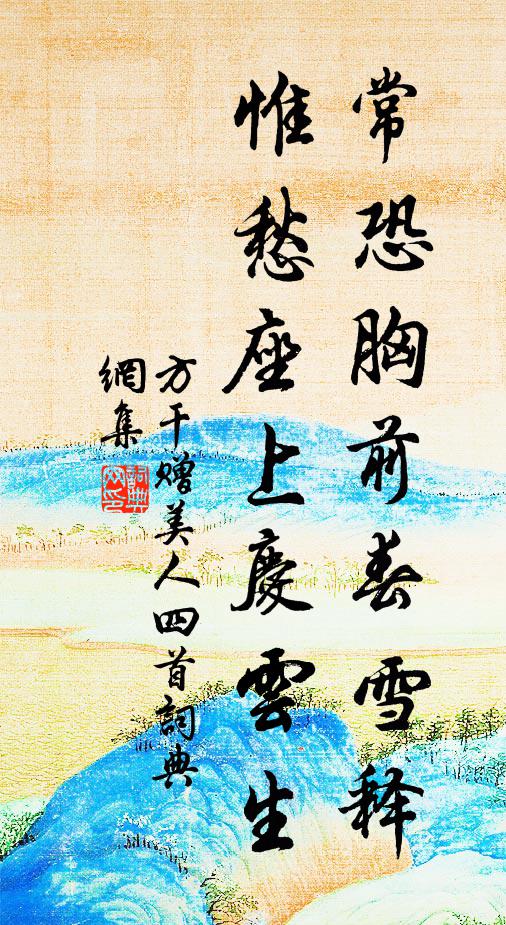 常恐胸前春雪释
惟愁座上慶雲生
方干贈美人四首詞典
網集